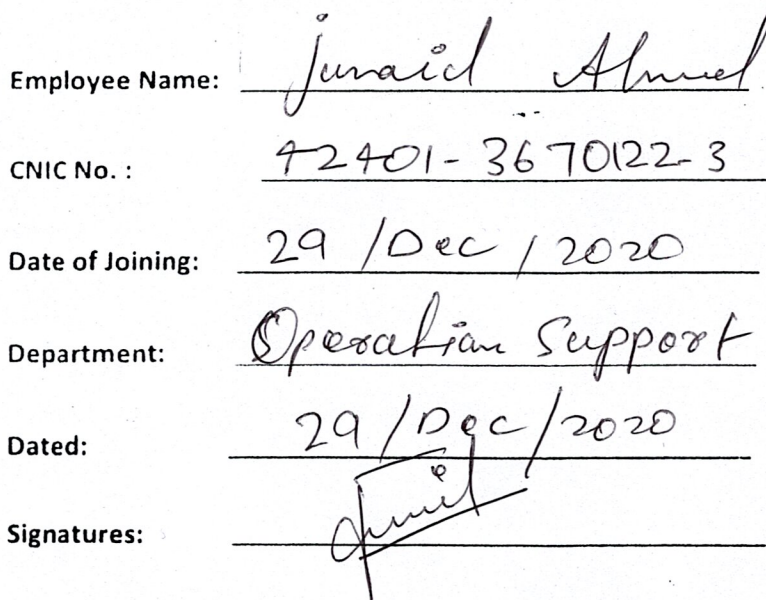 Employee Name: Junaid Ahmed
CNIC No. : 42401-3670122-3
Date of Joining: 29 /Dec / 2020
Department: Operation Support
Dated: 29 /Dec /2020
Signatures: